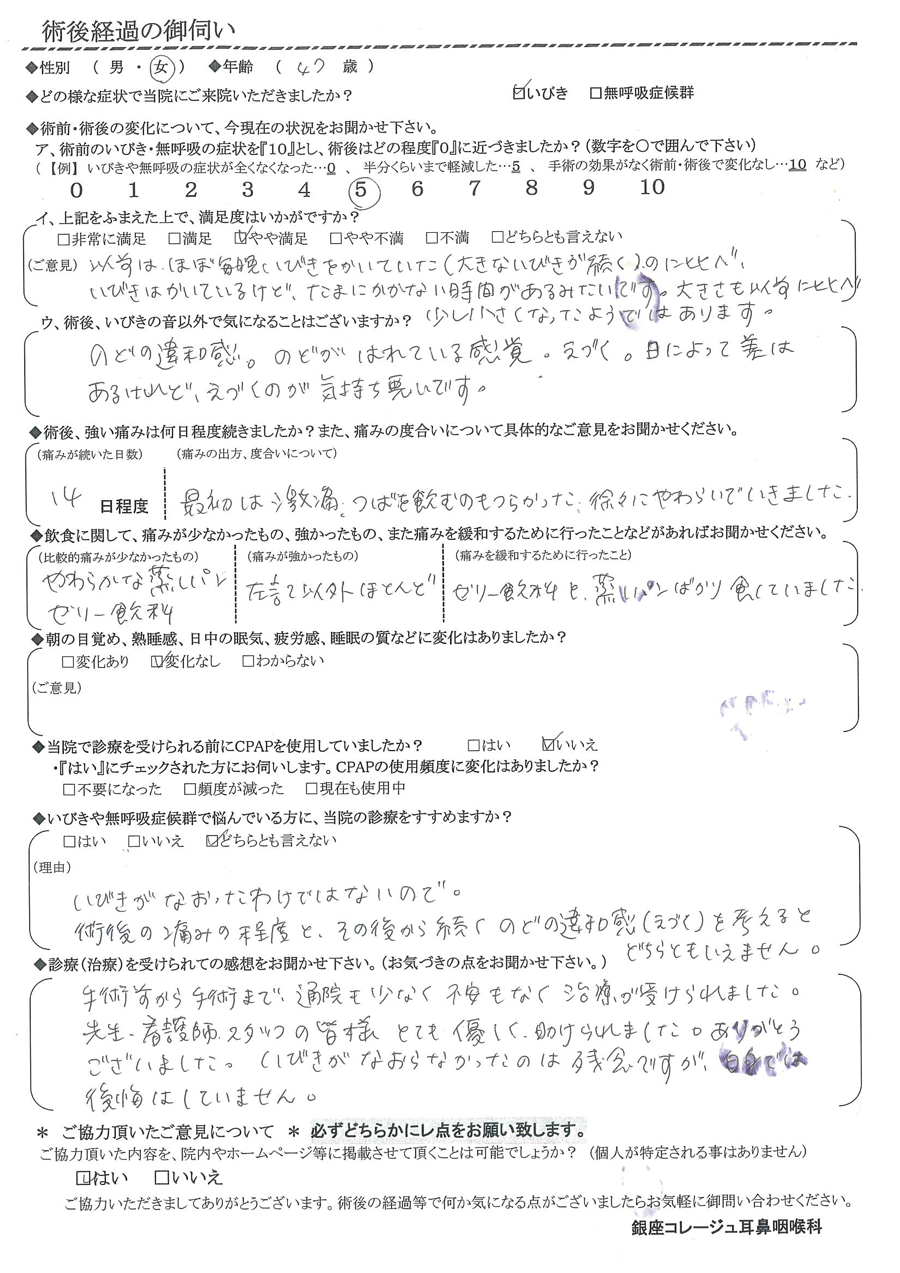 術後経過の御伺い
◆性別 ( 男 ・ 女 ) ◆年齢 ( 47 歳 )
◆どの様な症状で当院にご来院いただきましたか? ☑いびき □無呼吸症候群
◆術前・術後の変化について、今現在の状況をお聞かせ下さい。
ア、術前のいびき・無呼吸の症状を『10』とし、術後はどの程度『0』に近づきましたか?(数字を○で囲んで下さい)
(【例】いびきや無呼吸の症状が全くなくなった…0 、 半分くらいまで軽減した…5 、 手術の効果がなく術前・術後で変化なし…10 など)
0 1 2 3 4 5 6 7 8 9 10
イ、上記をふまえた上で、満足度はいかがですか?
□非常に満足 □満足 ☑やや満足 □やや不満 □不満 □どちらとも言えない
(ご意見) 以前は、ほぼ毎晩いびきをかいていた(大きないびきが続く)のに比べ、
いびきはかいているけど、たまにかかない時間があるみたいです。大きさも以前に比べ
少し小さくなったようではあります。
ウ、術後、いびきの音以外で気になることはございますか?
のどの違和感。のどがはれている感覚。えづく。日によって差は
あるけれど、えづくのが気持ち悪いです。
◆術後、強い痛みは何日程度続きましたか?また、痛みの度合いについて具体的なご意見をお聞かせください。
(痛みが続いた日数) (痛みの出方、度合いについて)
14 日程度 最初は激痛、つばを飲むのもつらかった、徐々にやわらいでいきました。
◆飲食に関して、痛みが少なかったもの、強かったもの、また痛みを緩和するために行ったことなどがあればお聞かせください。
(比較的痛みが少なかったもの) (痛みが強かったもの) (痛みを緩和するために行ったこと)
やわらかな蒸しパン
ゼリー飲料
左記以外ほとんど
ゼリー飲料と、蒸しパンばかり食していました。
◆朝の目覚め、熟睡感、日中の眠気、疲労感、睡眠の質などに変化はありましたか?
□変化あり ☑変化なし □わからない
(ご意見)
◆当院で診療を受けられる前にCPAPを使用していましたか? □はい ☑いいえ
・『はい』にチェックされた方にお伺いします。CPAPの使用頻度に変化はありましたか?
□不要になった □頻度が減った □現在も使用中
◆いびきや無呼吸症候群で悩んでいる方に、当院の診療をすすめますか?
□はい □いいえ ☑どちらとも言えない
(理由)
いびきがなおったわけではないので。
術後の痛みの程度と、その後から続くのどの違和感(えづく)を考えると
どちらともいえません。
◆診療(治療)を受けられての感想をお聞かせ下さい。(お気づきの点をお聞かせ下さい。)
手術前から手術まで、通院も少なく不安もなく治療が受けられました。
先生、看護師、スタッフの皆様とても優しく、助けられました。ありがとう
ございました。いびきがなおらなかったのは残念ですが、
後悔はしていません。
* ご協力頂いたご意見について * 必ずどちらかにレ点をお願い致します。
ご協力頂いた内容を、院内やホームページ等に掲載させて頂くことは可能でしょうか? (個人が特定される事はありません)
☑はい □いいえ
ご協力いただきましてありがとうございます。術後の経過等で何か気になる点がございましたらお気軽に御問い合わせください。
銀座コレージュ耳鼻咽喉科